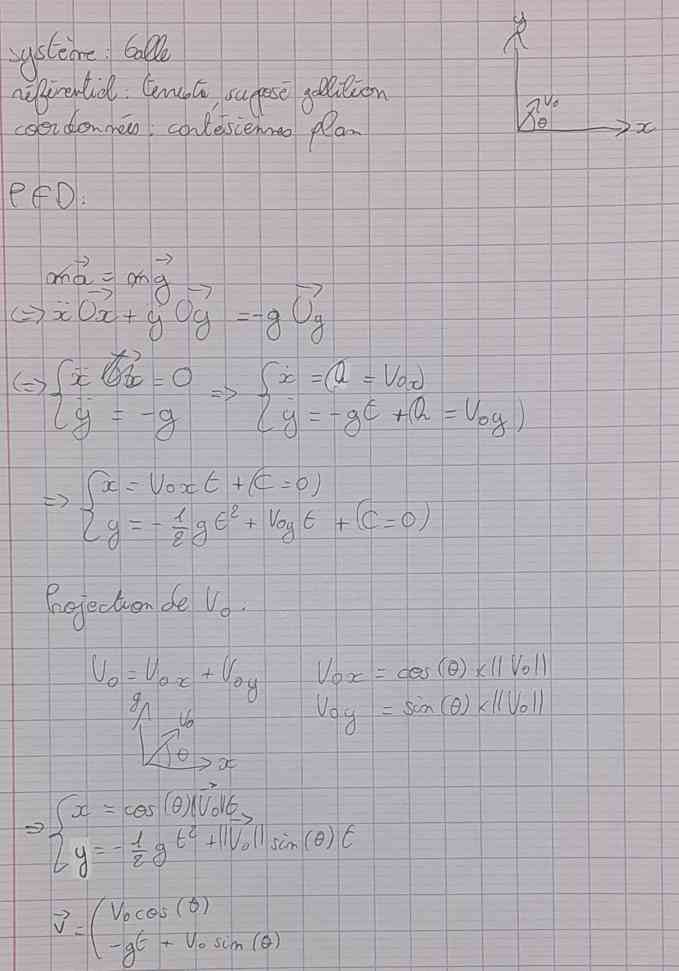 système : balle
y
référentiel : terrestre, suposé galiléen
V₀
coordonnées : cartésiennes plan
θ
x
PFD :
ma⃗ = mg⃗
(=> ẍ O⃗x + ÿ O⃗y = -g O⃗y
(=> { ẍ = 0 => { ẋ = (A = V₀x)
ÿ = -g ẏ = -gt + (A = V₀y)
=> { x = V₀x t + (C = 0)
y = - 1/2 g t² + V₀y t + (C = 0)
Projection de V₀.
V₀ = V₀x + V₀y V₀x = cos(θ) × ||V₀||
V₀y = sin(θ) × ||V₀||
y V₀
θ x
=> { x = cos(θ) ||V⃗₀|| t
y = - 1/2 g t² + ||V⃗₀|| sin(θ) t
V⃗ = ( V₀ cos(θ)
-gt + V₀ sin(θ)